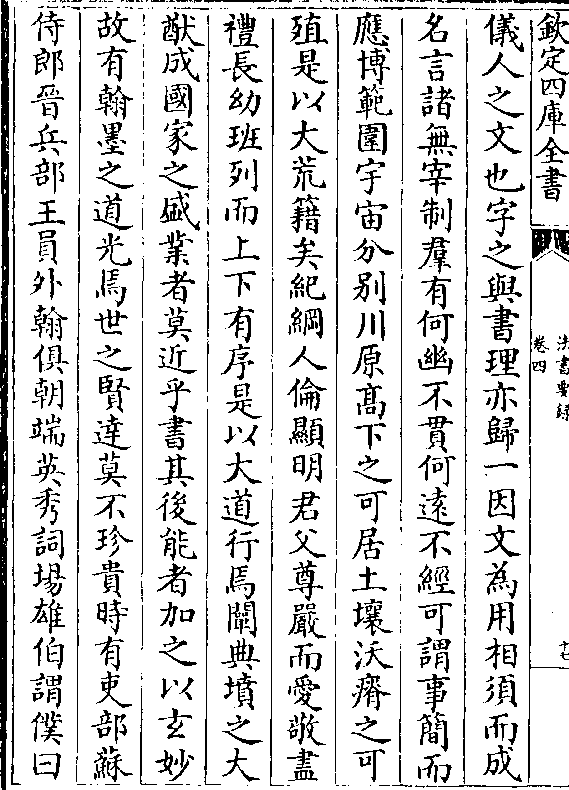 欽定四庫全書
法書要錄
卷四
十七
儀人之文也字之與書理亦歸一因文為用相須而成
名言諸無宰制羣有何幽不貫何遠不經可謂事簡而
應博範圍宇宙分别川原髙下之可居土壤沃瘠之可
殖是以大荒籍矣紀綱人倫顯明君父尊嚴而愛敬盡
禮長幼班列而上下有序是以大道行焉闡典墳之大
猷成國家之盛業者莫近乎書其後能者加之以玄妙
故有翰墨之道光焉世之賢達莫不珍貴時有吏部蘇
侍郎晉兵部王員外翰俱朝端英秀詞場雄伯謂僕曰